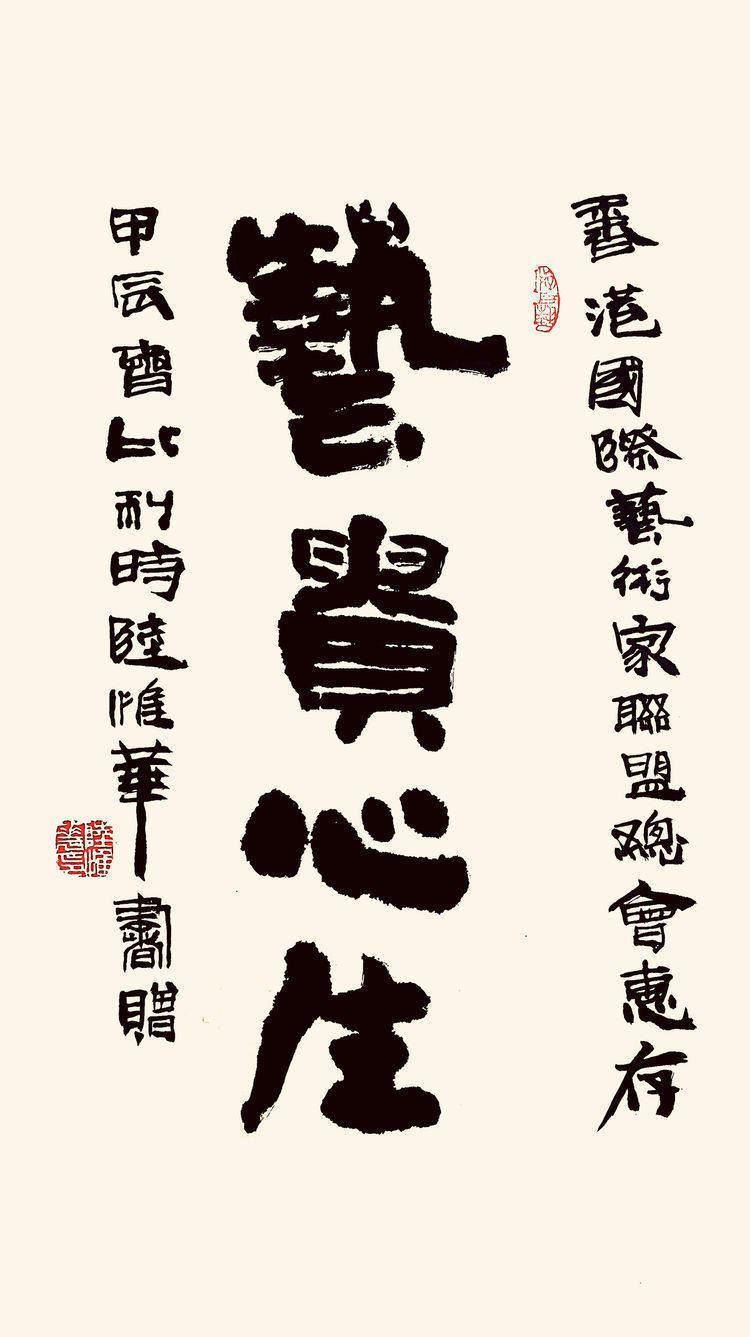 香港國際藝術家聯盟總會惠存
藝貴心生
甲辰比利時陸惟華書贈